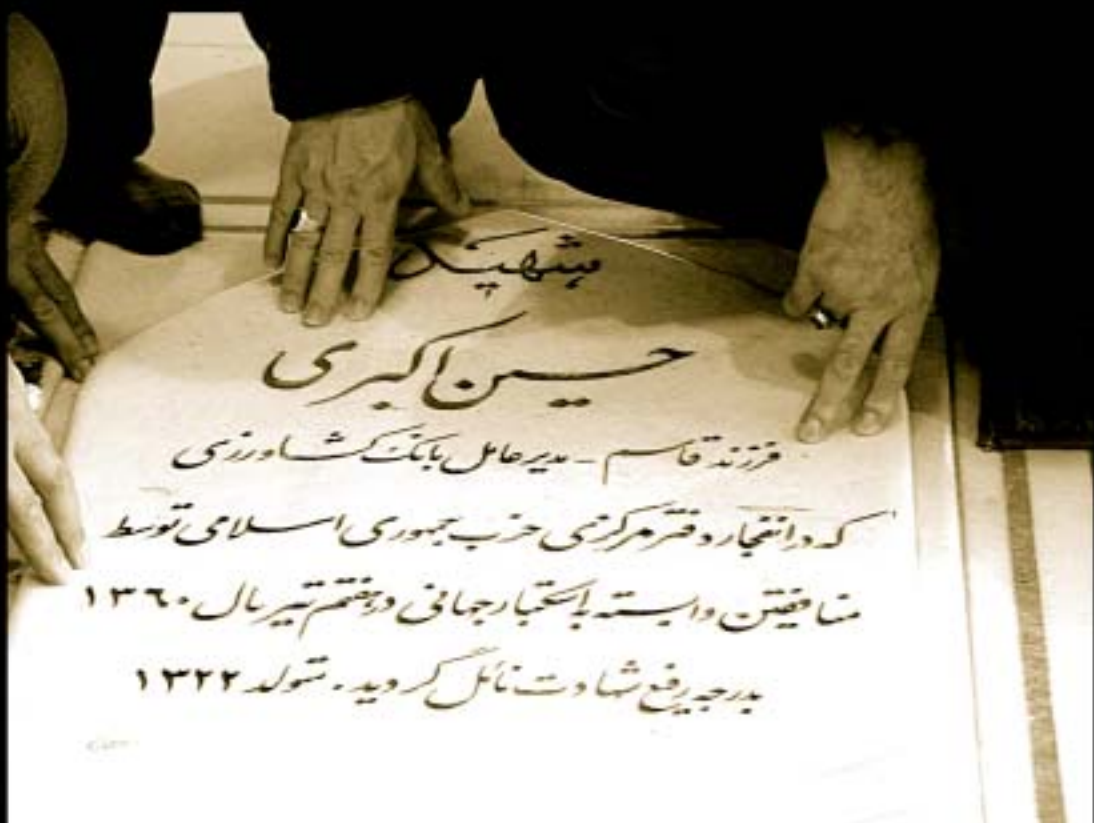 شهید
حسن اکبری
فرزند قاسم - مدیر عامل بانک کشاورزی
که در انفجار دفتر مرکزی حزب جمهوری اسلامی توسط
منافقین وابسته به استکبار جهانی در هفتم تیر سال ۱۳۶۰
بدرجه رفیع شهادت نائل گردید. متولد ۱۳۲۲